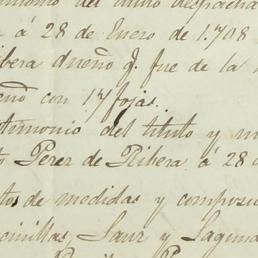 del titulo despacha
á 28 de Enero de 1.708
Ribera dueño q. fue de la
con 17 fojas.
timonio del titulo y m
Perez de Ribera á 28 d
tos de medidas y composi
cinillas, Sauz y Laguna